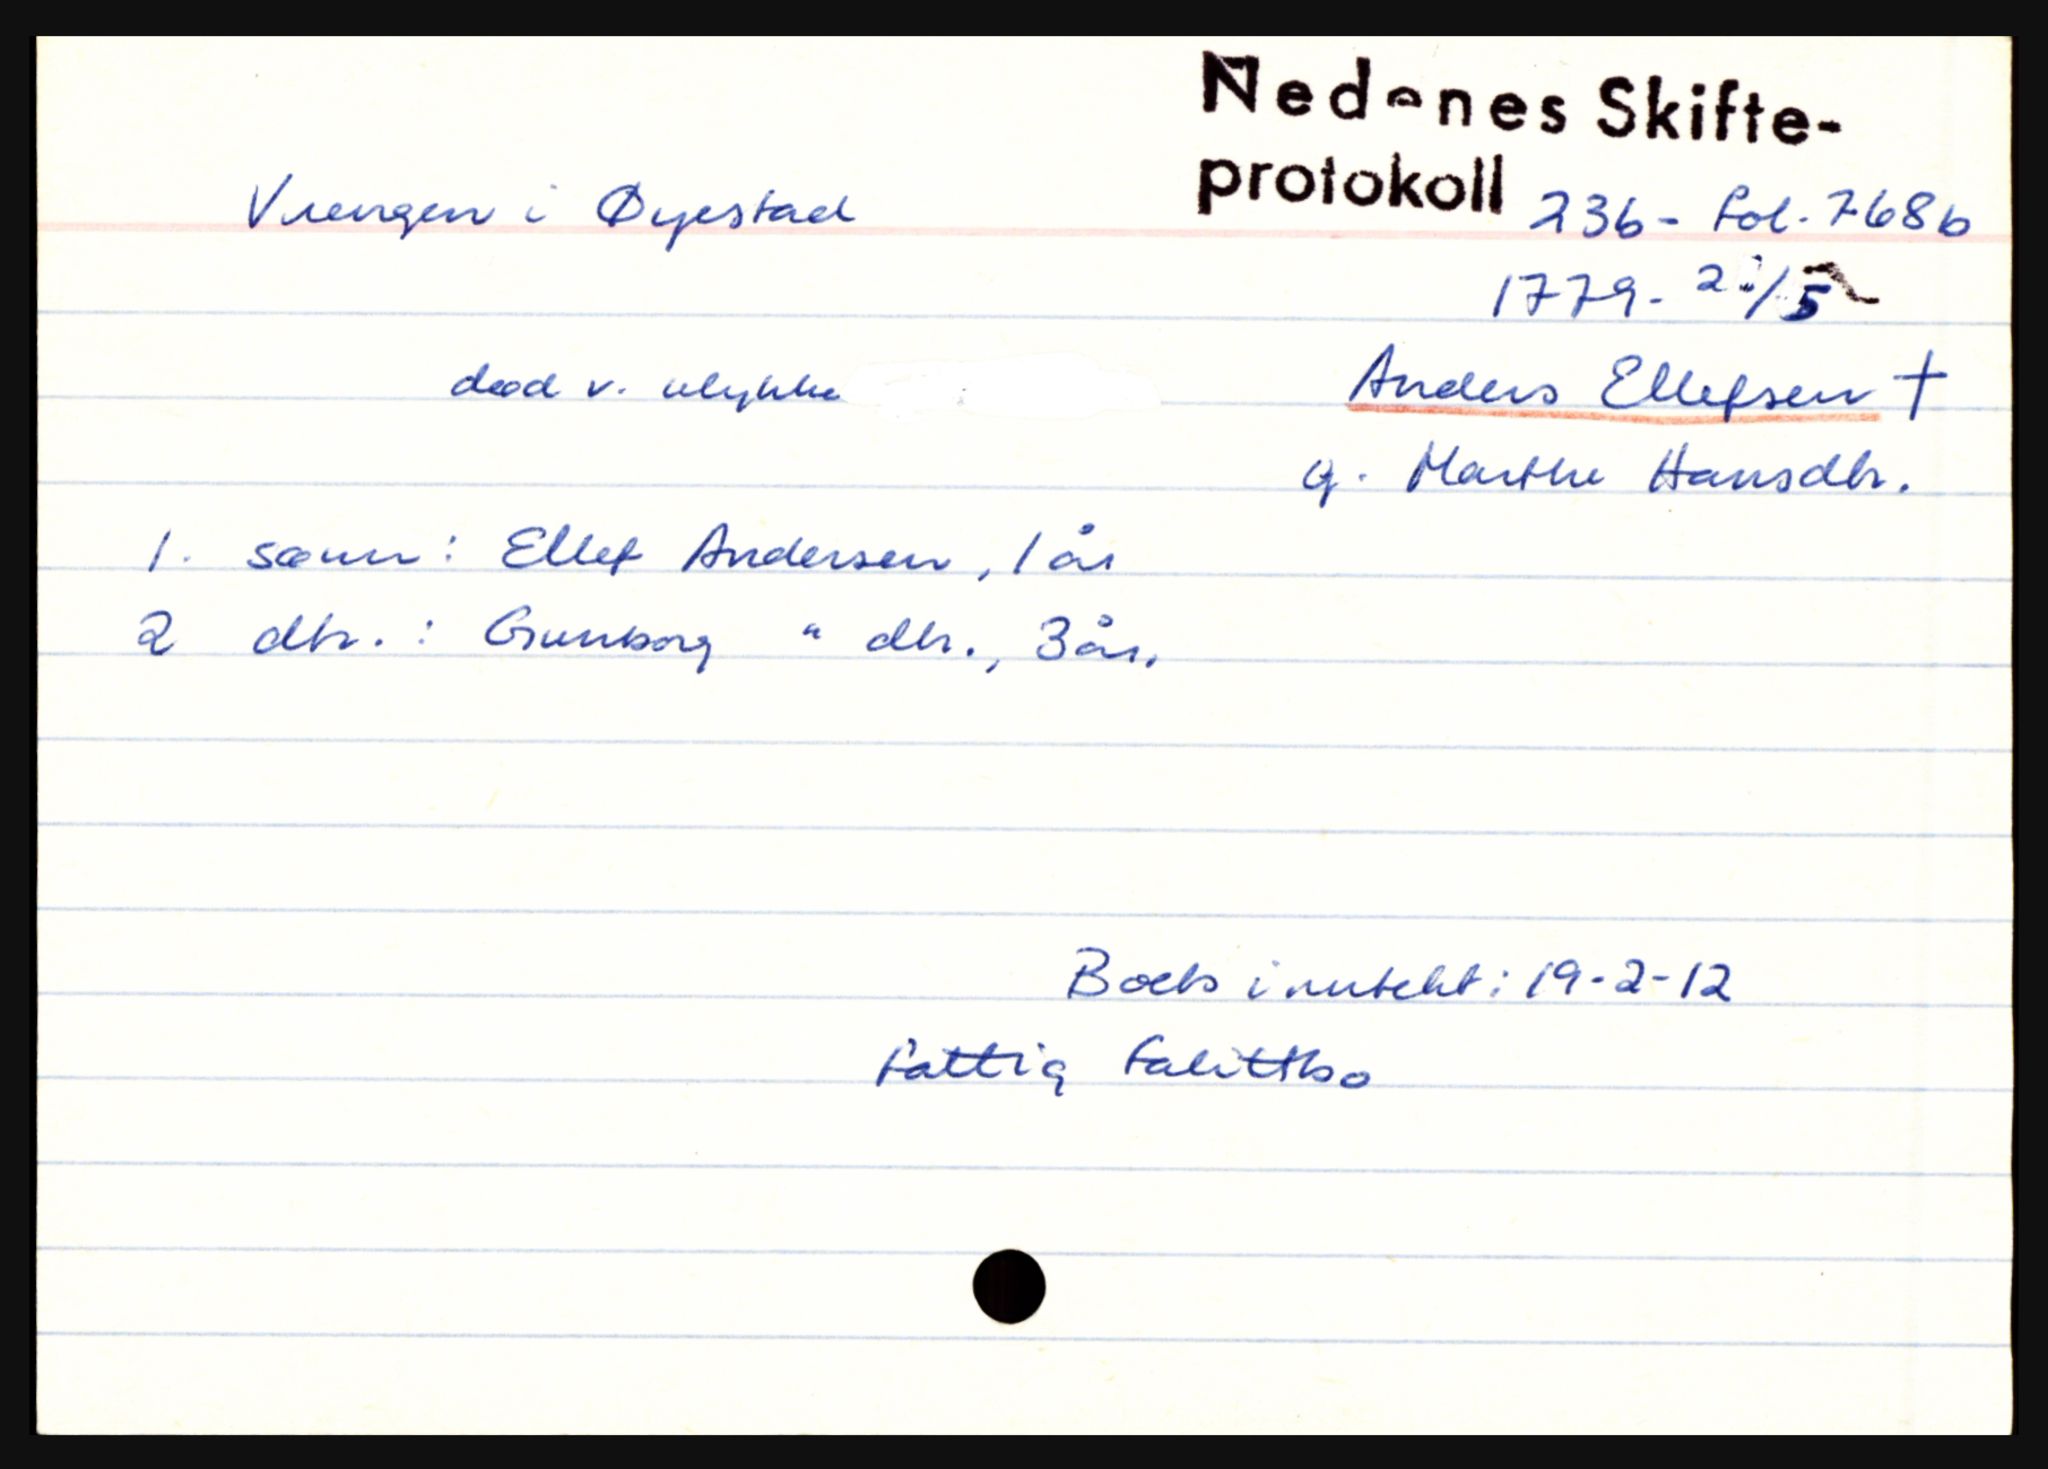 Nedenes Skifte-
protokoll
Vrengen i Øyestad 23b - fol. 768b
1779 - 2 /5
død v. ulykke Anders Ellefsen †
g. Marthe Hansdtr.
1. sønn: Ellef Andersen, 1 år
2 dtr.: Gunborg " dtr., 3 år.
Boets inntekt: 19-2-12
fattig falittbo